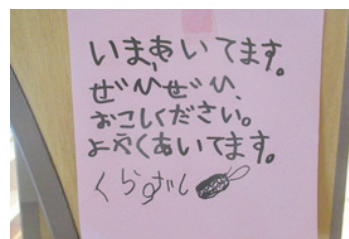 いまあいてます。
ぜひぜひ、
おこしください。
よやくあいてます。
くらずし